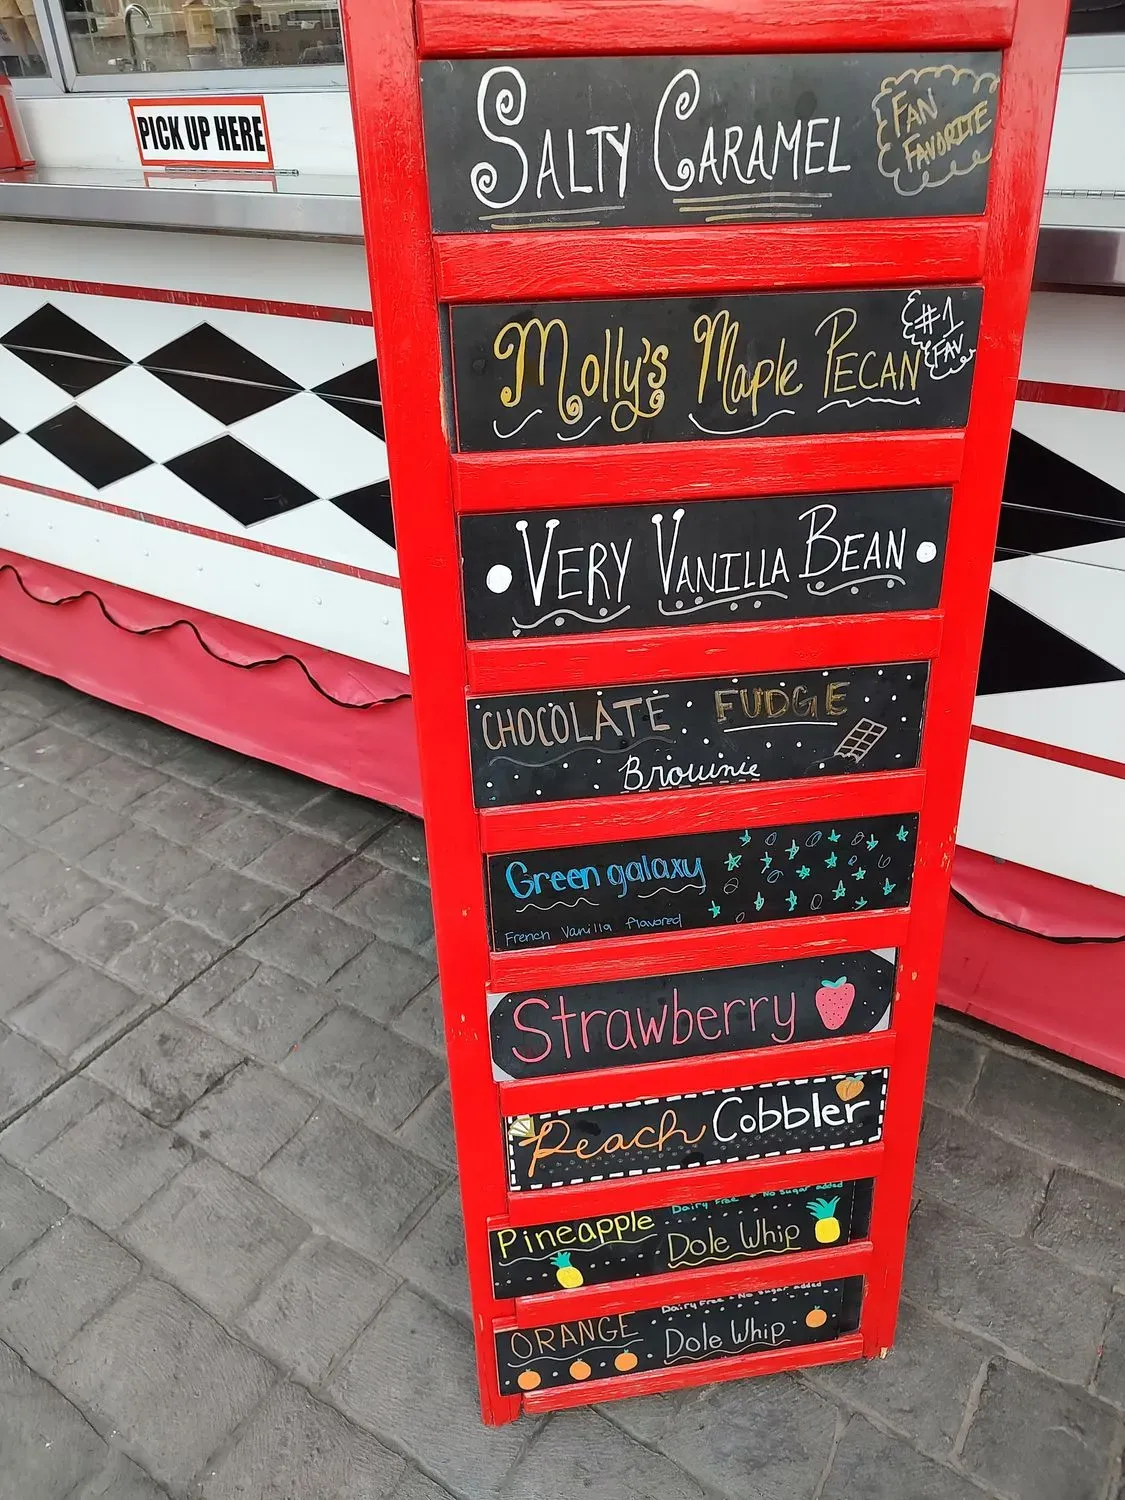 PICK UP HERE
SALTY CARAMEL
FAN
FAVORITE
Molly's Maple PECAN
#1
FAV
VERY VANILLA BEAN
CHOCOLATE FUDGE
Brownie
Green galaxy
French Vanilla flavored
Strawberry
Peach Cobbler
Dairy Free + No sugar added
Pineapple
Dole Whip
Dairy Free + No sugar added
ORANGE
Dole Whip